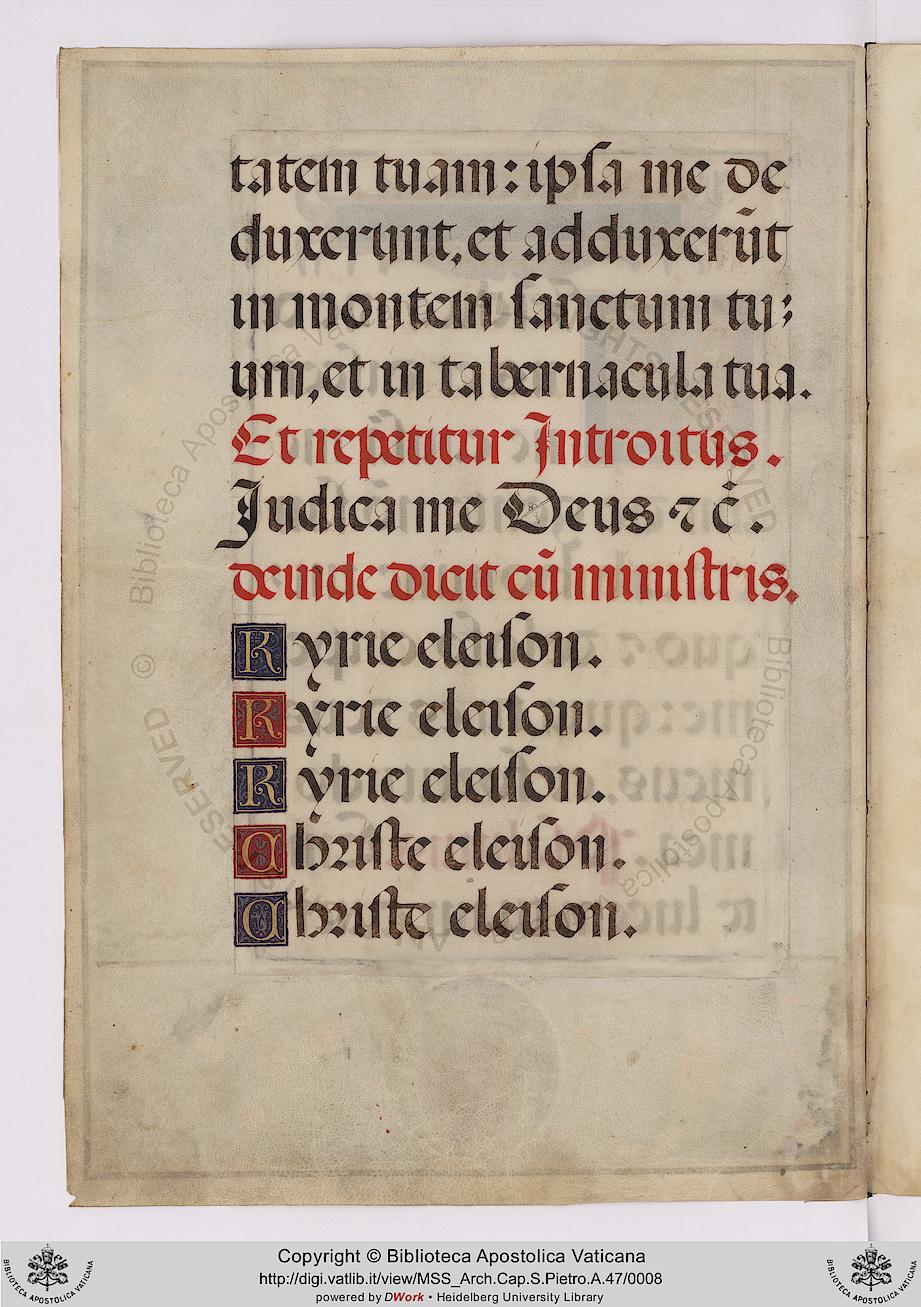 tatem tuam: ipsa me de
duxerunt, et adduxerūt
in montem sanctum tu;
um, et in tabernacula tua.
Et repetitur Introitus.
Judica me Deus ⁊ c̄.
deinde dicit cū ministris.
Kyrie eleison.
Kyrie eleison.
Kyrie eleison.
Christe eleison.
Christe eleison.
Copyright © Biblioteca Apostolica Vaticana
http://digi.vatlib.it/view/MSS_Arch.Cap.S.Pietro.A.47/0008
powered by DWork • Heidelberg University Library
BIBLIOTECA APOSTOLICA VATICANA
BIBLIOTECA APOSTOLICA VATICANA